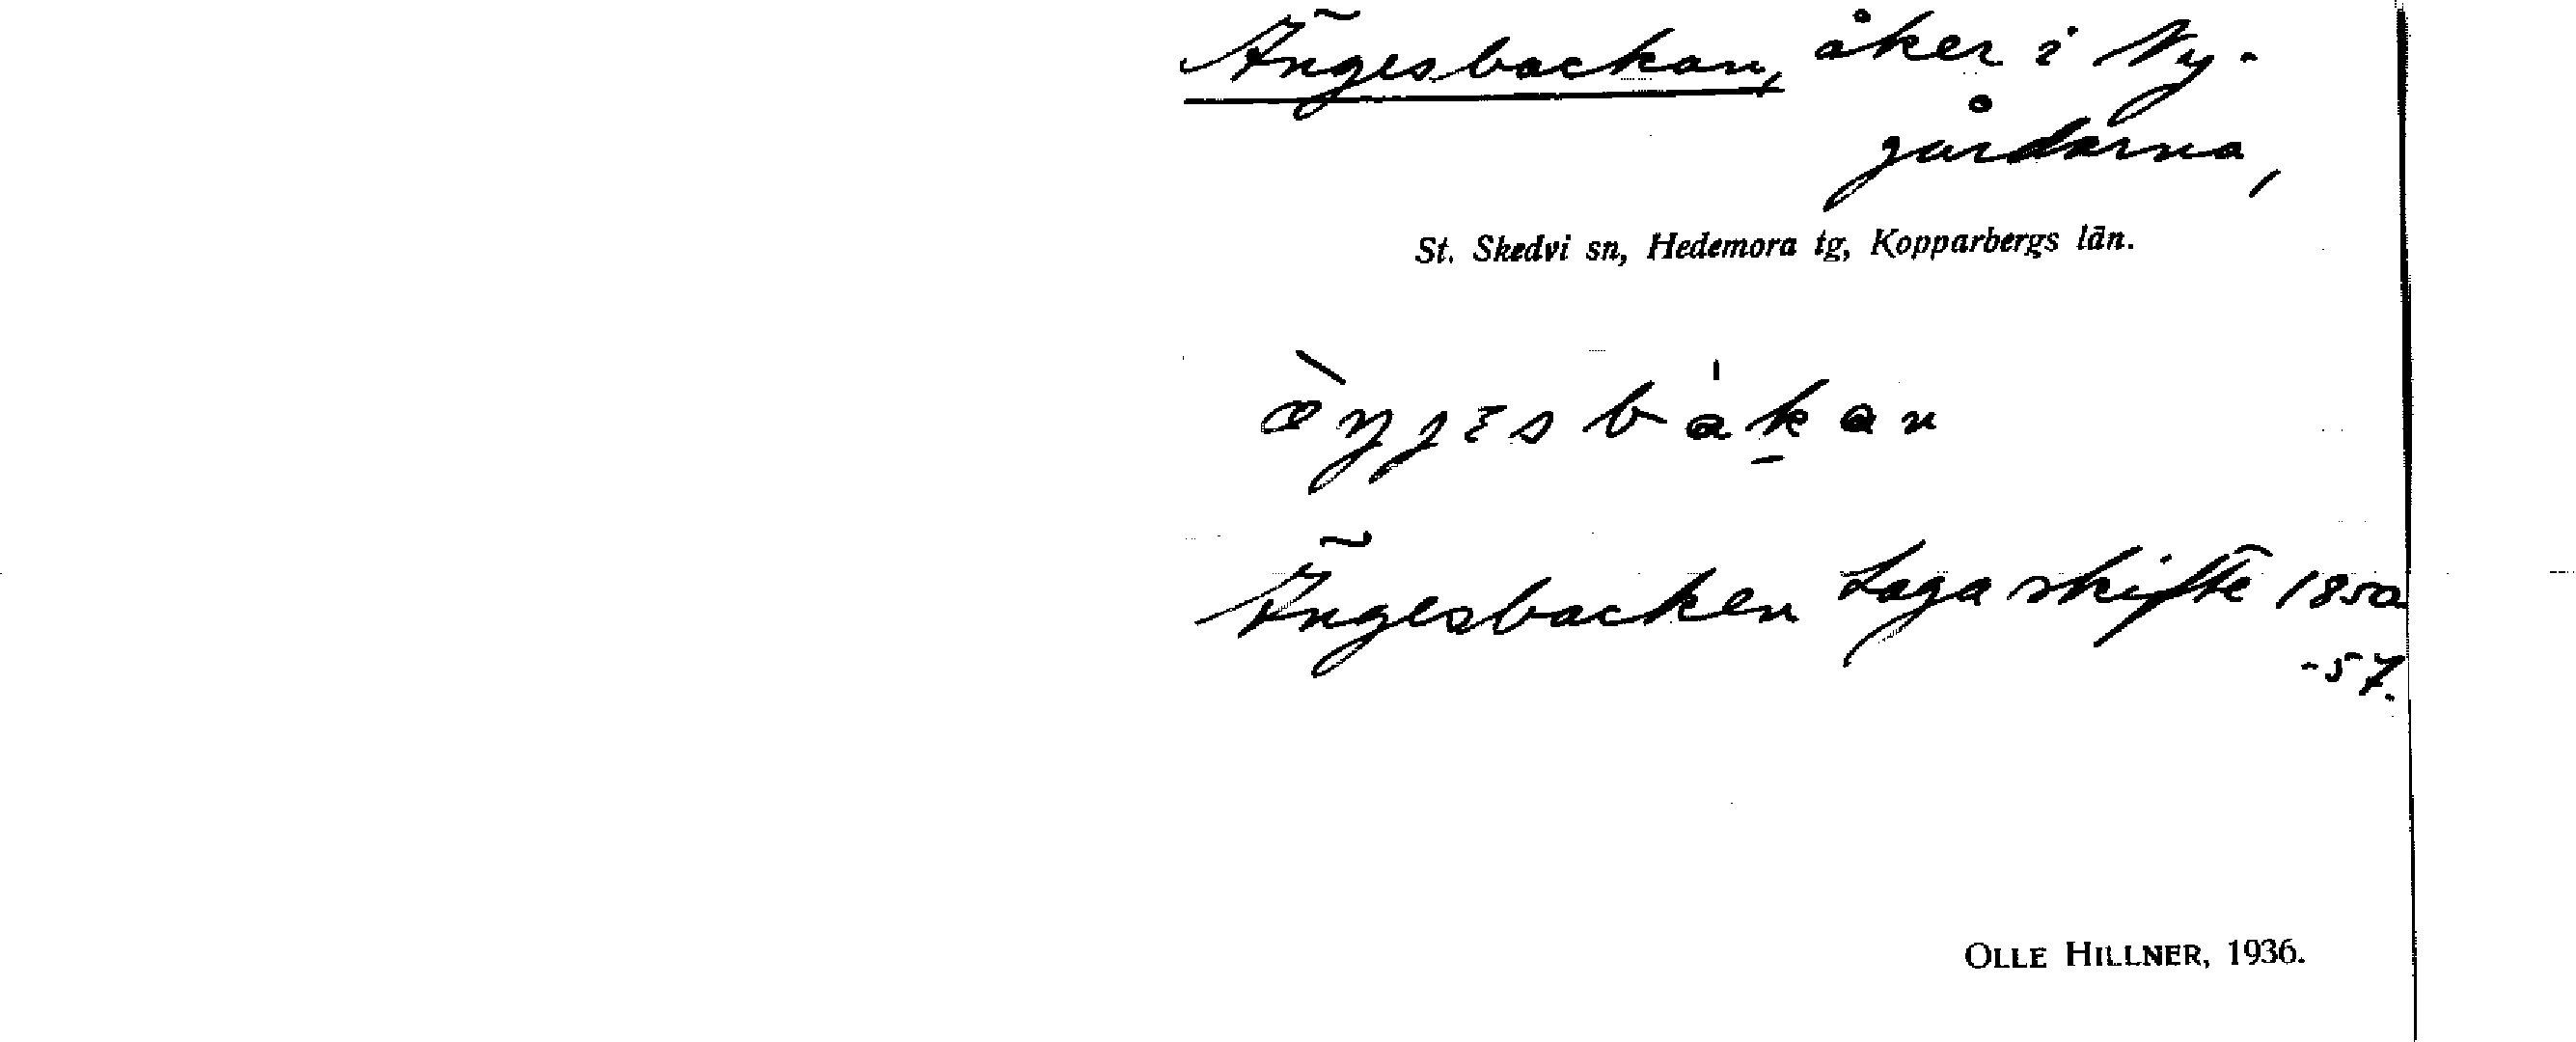 Ängesbackan, åker i Ny-
gårdarna,
St. Skedvi sn, Hedemora tg, Kopparbergs län.
Ängesbacken Laga skifte 1850
-57.
OLLE HILLNER, 1936.